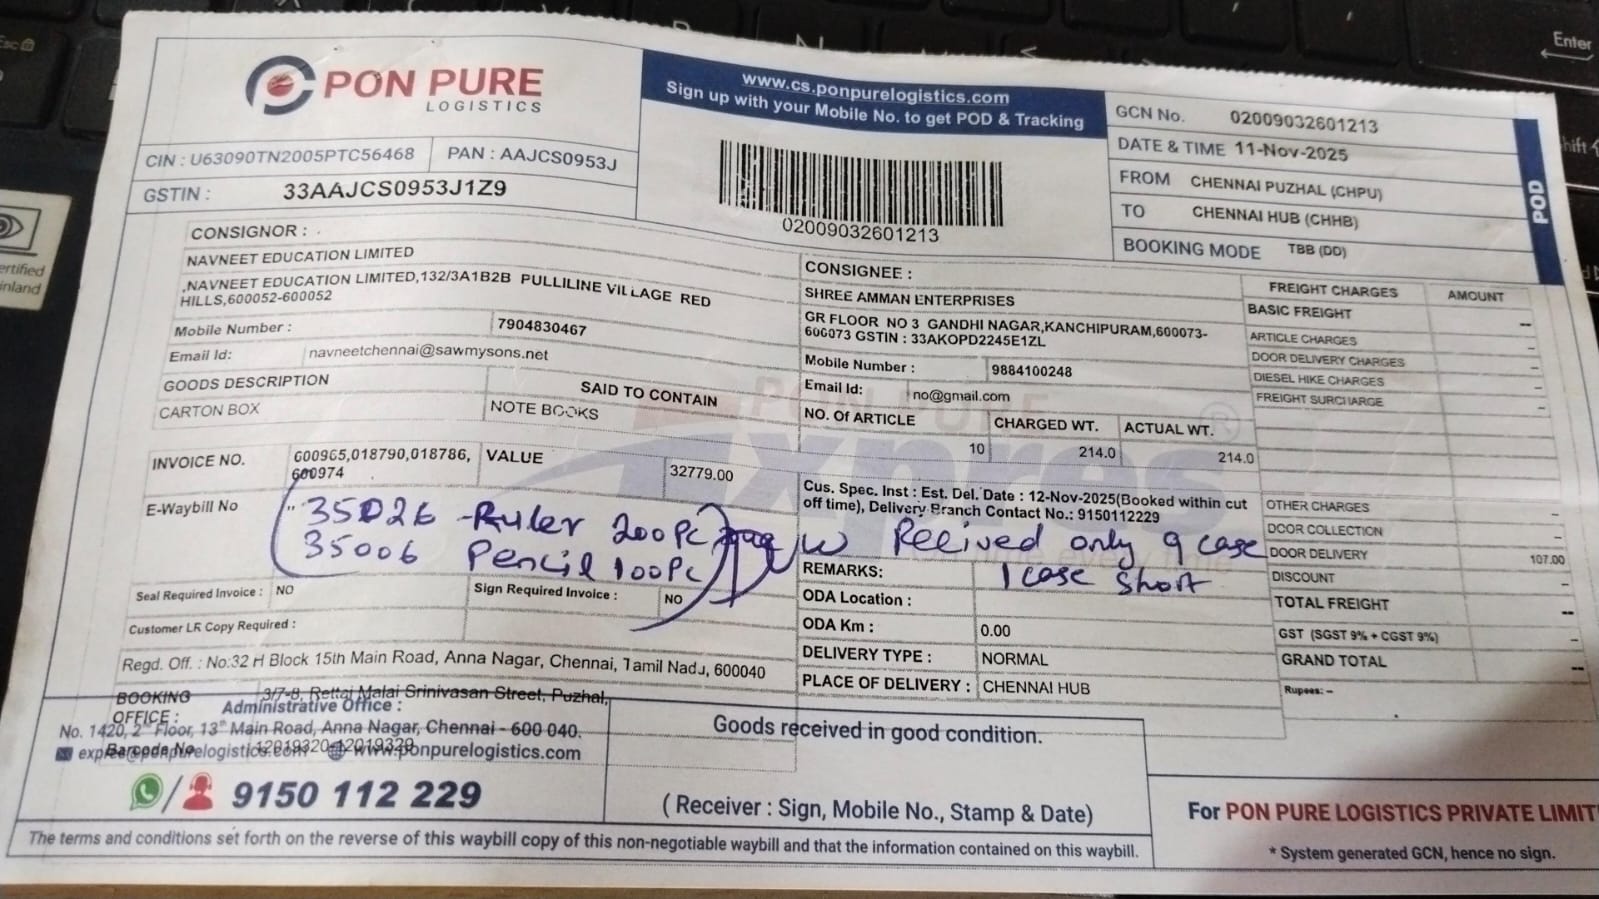 PON PURE
LOGISTICS
CIN : U63090TN2005PTC56468
PAN : AAJCS0953J
GSTIN : 33AAJCS0953J1Z9
www.cs.ponpurelogistics.com
Sign up with your Mobile No. to get POD & Tracking
02009032601213
GCN No. 02009032601213
DATE & TIME 11-Nov-2025
FROM CHENNAI PUZHAL (CHPU)
TO CHENNAI HUB (CHHB)
BOOKING MODE TBB (DD)
POD
CONSIGNOR :
NAVNEET EDUCATION LIMITED
,NAVNEET EDUCATION LIMITED,132/3A1B2B PULLILINE VILLAGE RED
HILLS,600052-600052
Mobile Number : 7904830467
Email Id: navneetchennai@sawmysons.net
GOODS DESCRIPTION SAID TO CONTAIN
CARTON BOX NOTE BOOKS
INVOICE NO. 600965,018790,018786,
600974
VALUE 32779.00
E-Waybill No
35026 - Ruler 200Pc
35006 Pencil 100Pc
Seal Required Invoice : NO
Sign Required Invoice : NO
Customer LR Copy Required :
Regd. Off. : No:32 H Block 15th Main Road, Anna Nagar, Chennai, Tamil Nadu, 600040
BOOKING
OFFICE :
3/7-8, Rettai Malai Srinivasan Street, Puzhal,
Barcode No 12019320-12019329
CONSIGNEE :
SHREE AMMAN ENTERPRISES
GR FLOOR NO 3 GANDHI NAGAR,KANCHIPURAM,600073-
600073 GSTIN : 33AKOPD2245E1ZL
Mobile Number : 9884100248
Email Id: no@gmail.com
NO. Of ARTICLE CHARGED WT. ACTUAL WT.
10 214.0 214.0
Cus. Spec. Inst : Est. Del. Date : 12-Nov-2025(Booked within cut
off time), Delivery Branch Contact No.: 9150112229
Recived only 9 case
1 case short
REMARKS:
ODA Location :
ODA Km : 0.00
DELIVERY TYPE : NORMAL
PLACE OF DELIVERY : CHENNAI HUB
FREIGHT CHARGES AMOUNT
BASIC FREIGHT --
ARTICLE CHARGES -
DOOR DELIVERY CHARGES -
DIESEL HIKE CHARGES -
FREIGHT SURCHARGE -
OTHER CHARGES -
DOOR COLLECTION -
DOOR DELIVERY 107.00
DISCOUNT -
TOTAL FREIGHT --
GST (SGST 9% + CGST 9%) -
GRAND TOTAL --
Rupees: –
Administrative Office :
No. 1420, 2nd Floor, 13th Main Road, Anna Nagar, Chennai - 600 040.
www.ponpurelogistics.com
9150 112 229
Goods received in good condition.
( Receiver : Sign, Mobile No., Stamp & Date)
For PON PURE LOGISTICS PRIVATE LIMIT
* System generated GCN, hence no sign.
The terms and conditions set forth on the reverse of this waybill copy of this non-negotiable waybill and that the information contained on this waybill.
Enter
Esc